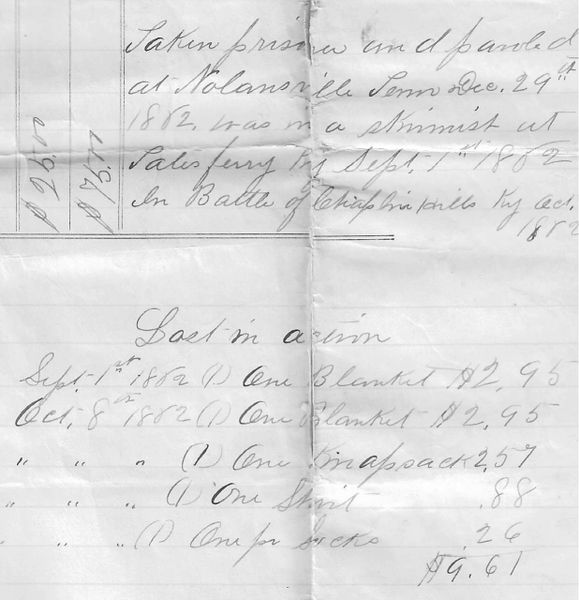 Taken prisoner and paroled
at Nolansville Tenn Dec. 29th
1862. was in a skirmist at
Salesferry Ky Sept. 1st 1862
In Battle of Chaplin Hills Ky Oct.
1862
Lost in action
Sept. 1st 1862 (1) One Blanket $2,95
Oct. 8th 1862 (1) One Blanket $2,95
" " " (1) One Knapsack 2,57
" " " (1) One Shirt .88
" " " (1) One pr Socks .26
$9.61